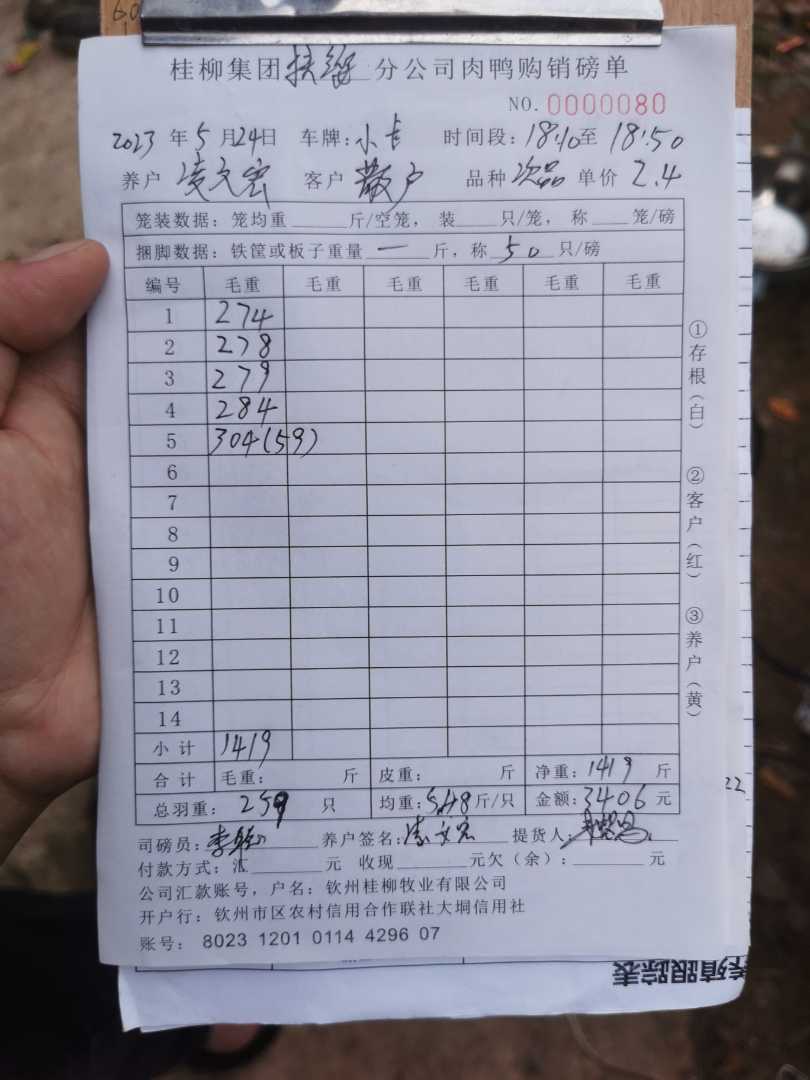 60
桂柳集团 分公司肉鸭购销磅单
NO. 0000080
2023 年 5 月 24 日 车牌: 小卡 时间段: 18:10 至 18:50
养户 凌文宏 客户 散户 品种 次品 单价 2.4
笼装数据: 笼均重 斤/空笼, 装 只/笼, 称 笼/磅
捆脚数据: 铁筐或板子重量 一 斤, 称 50 只/磅
编号 毛重 毛重 毛重 毛重 毛重 毛重
1 274
2 278
3 279
4 284
5 304(59)
6
7
8
9
10
11
12
13
14
小计 1419
合计 毛重: 斤 皮重: 斤 净重: 1419 斤
总羽重: 259 只 均重: 5.48 斤/只 金额: 3406 元
司磅员: 养户签名: 凌文宏 提货人:
付款方式: 汇 元 收现 元欠(余): 元
公司汇款账号, 户名: 钦州桂柳牧业有限公司
开户行: 钦州市区农村信用合作联社大垌信用社
账号: 8023 1201 0114 4296 07
①存根(白)
②客户(红)
③养户(黄)
22
养殖跟踪表